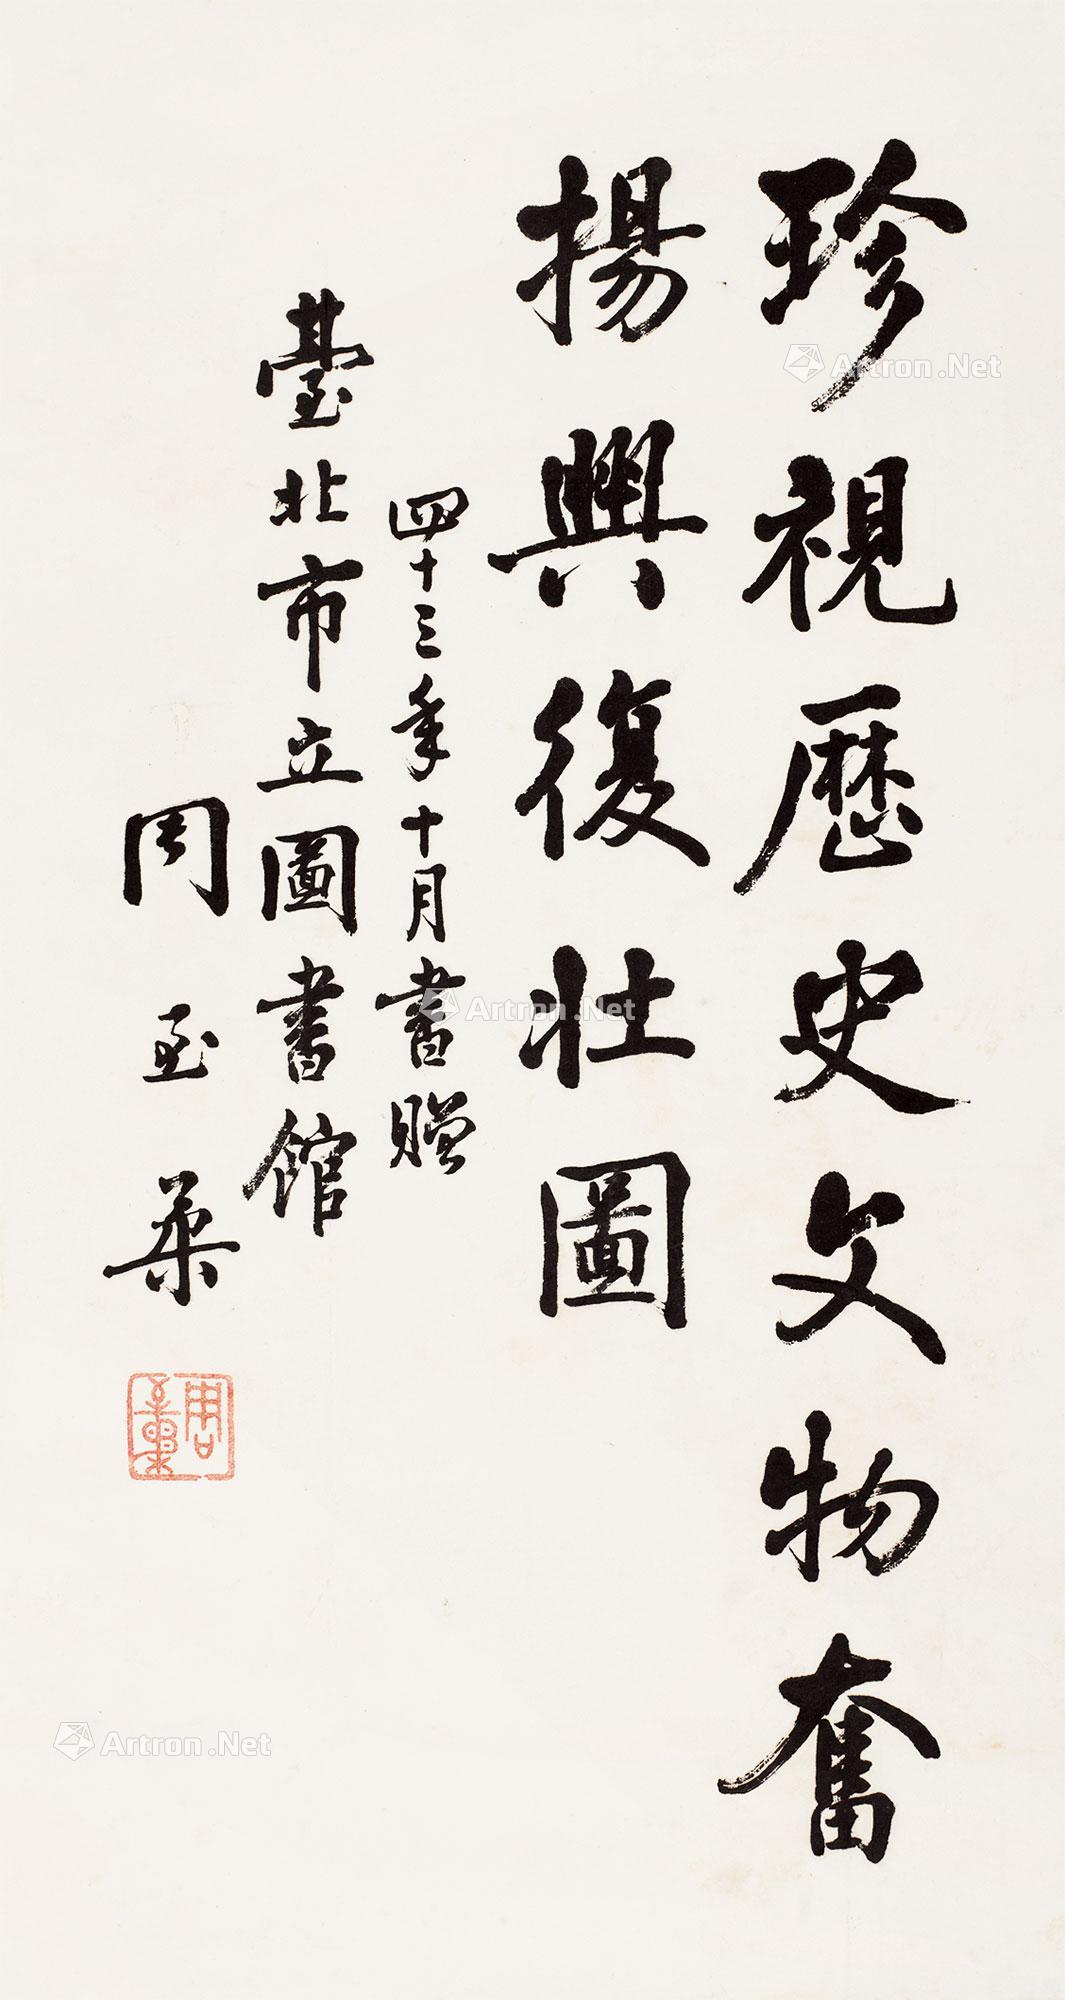 珍視歷史文物奮
揚興復壯圖
四十三年十月書贈
臺北市立圖書館
周至柔
Artron.Net
Artron.Net
Artron.Net